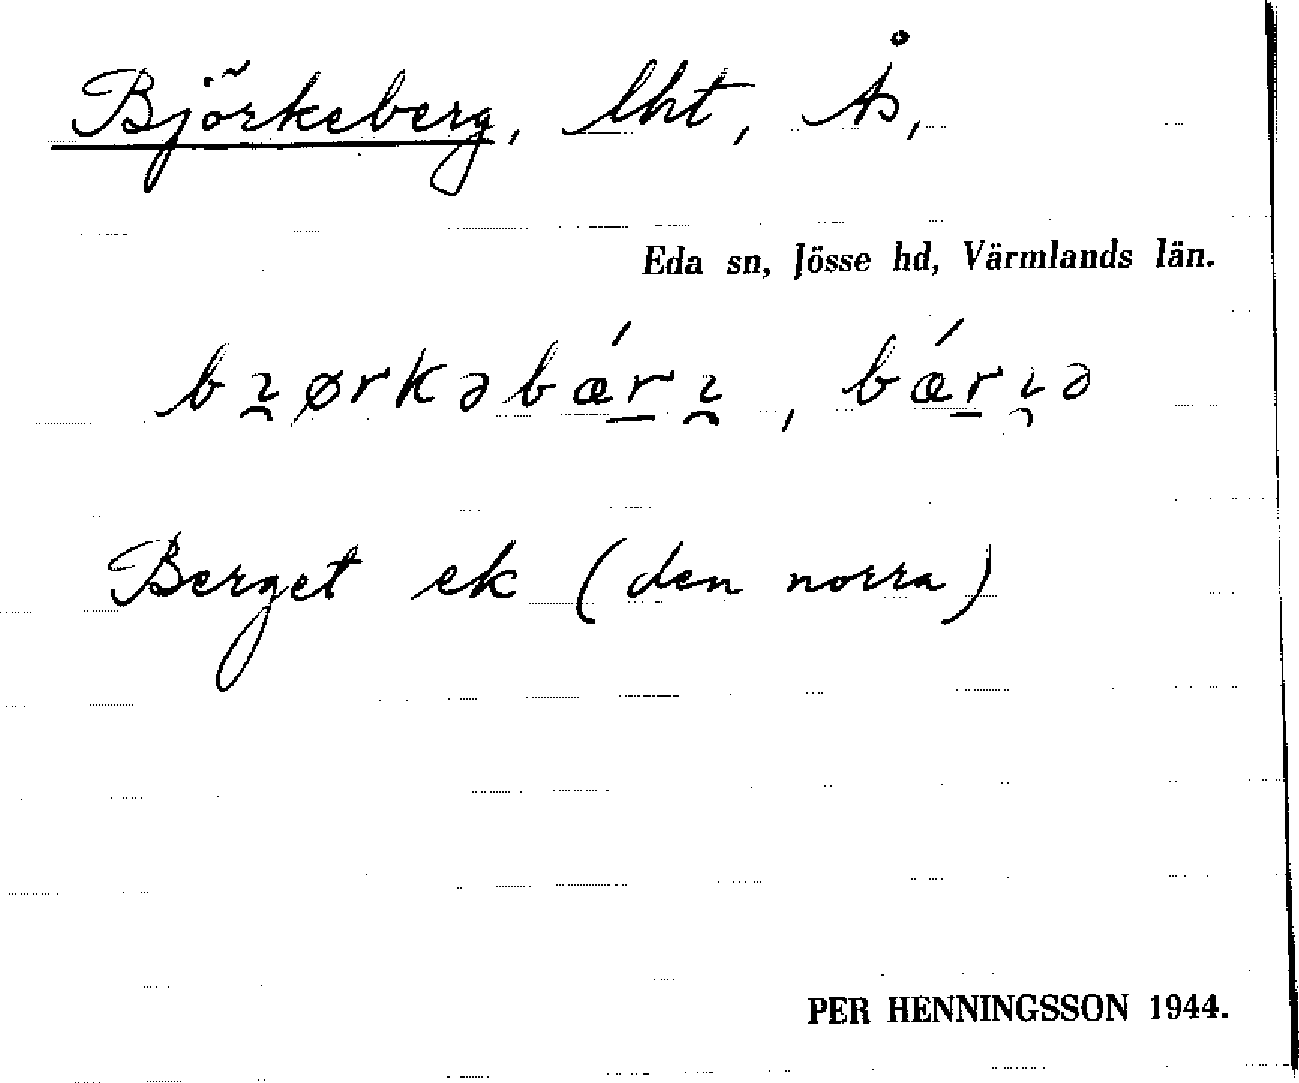 Björkeberg, lht, Ås,
Eda sn, Jösse hd, Värmlands län.
bı̯ørkəbǽr̠ı̯, bǽr̠ı̯ə
Berget ek (den norra)
PER HENNINGSSON 1944.